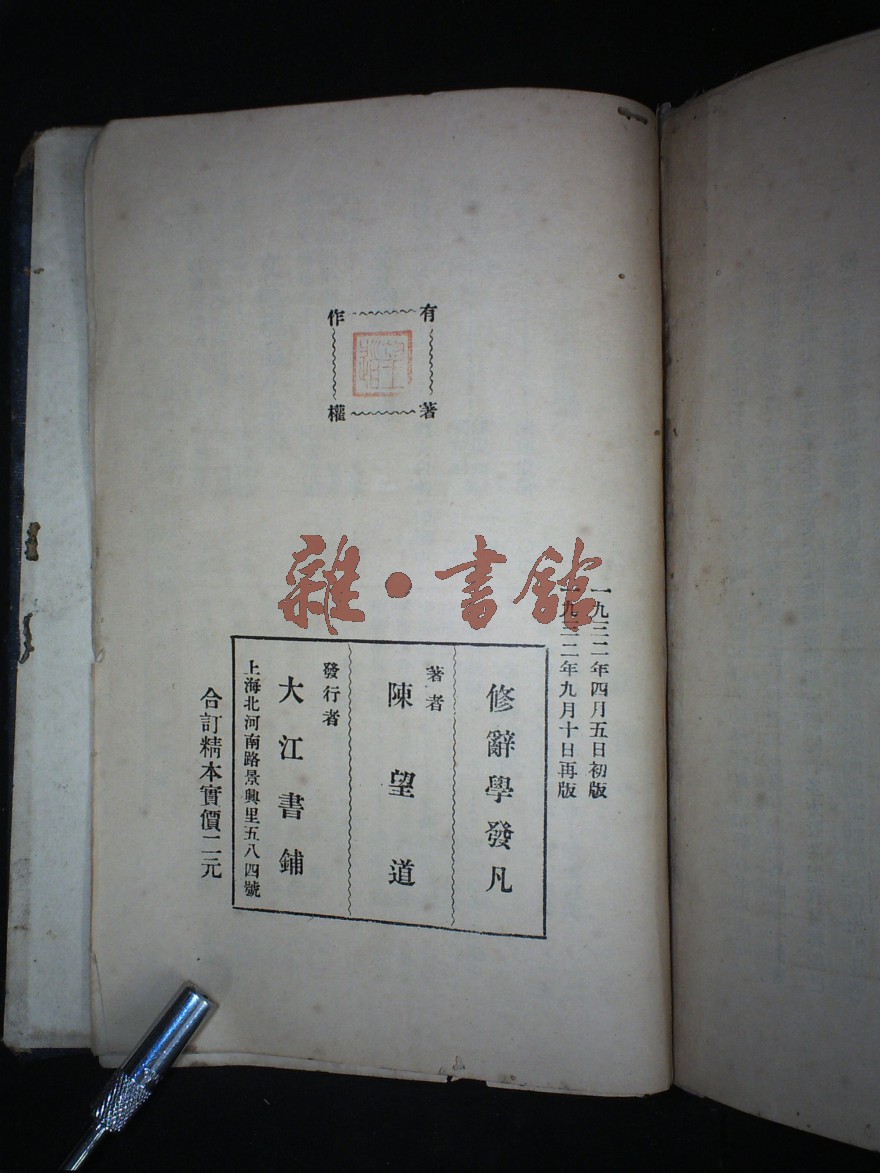 有著作權
望道
雜·書館
一九三二年四月五日初版
一九三二年九月十日再版
修辭學發凡
著者
陳望道
發行者
大江書鋪
上海北河南路景興里五八四號
合訂精本實價二元